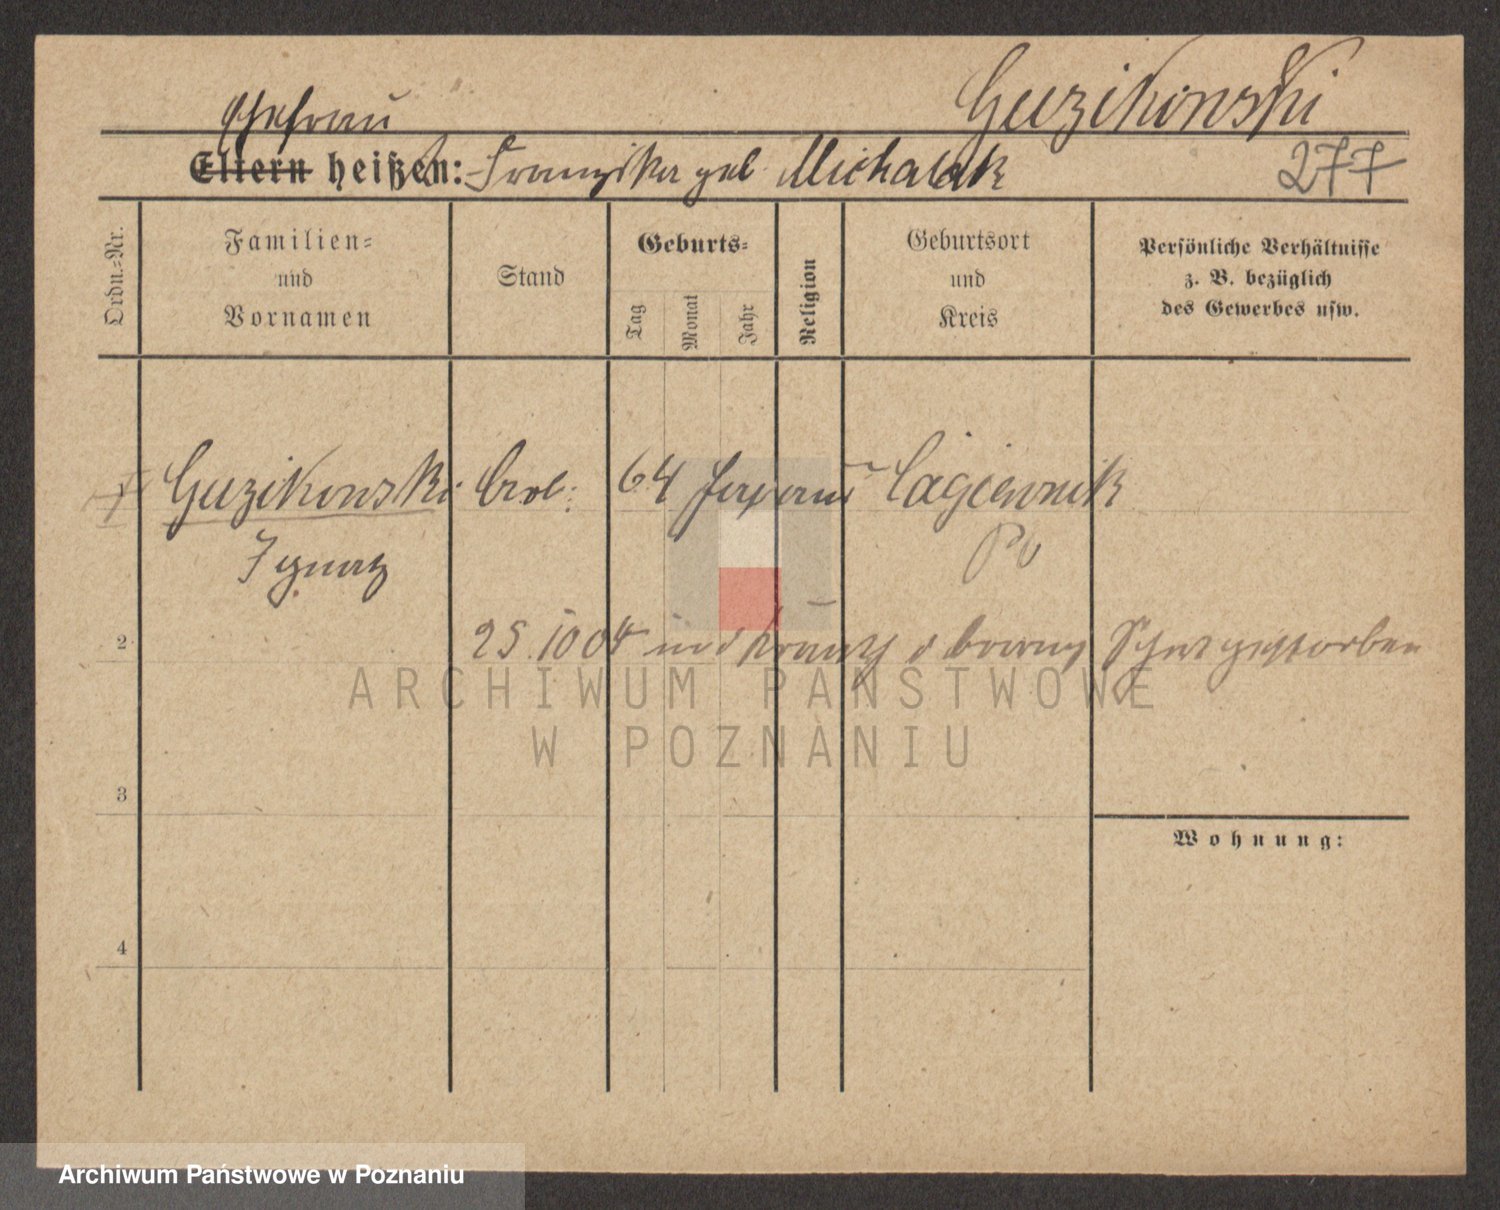 Guzikowski
Ehefrau
Eltern heißen: Franziska geb Michalak
277
Ordn.-Nr.
Familien-
und
Vornamen
Stand
Geburts-
Tag
Monat
Jahr
Religion
Geburtsort
und
Kreis
Persönliche Verhältnisse
z. B. bezüglich
des Gewerbes usw.
Guzikowski Arb: 64 Łagiewnik
Ignatz
2
25.10 04 gestorben
ARCHIWUM PAŃSTWOWE
W POZNANIU
3
Wohnung:
4
Archiwum Państwowe w Poznaniu